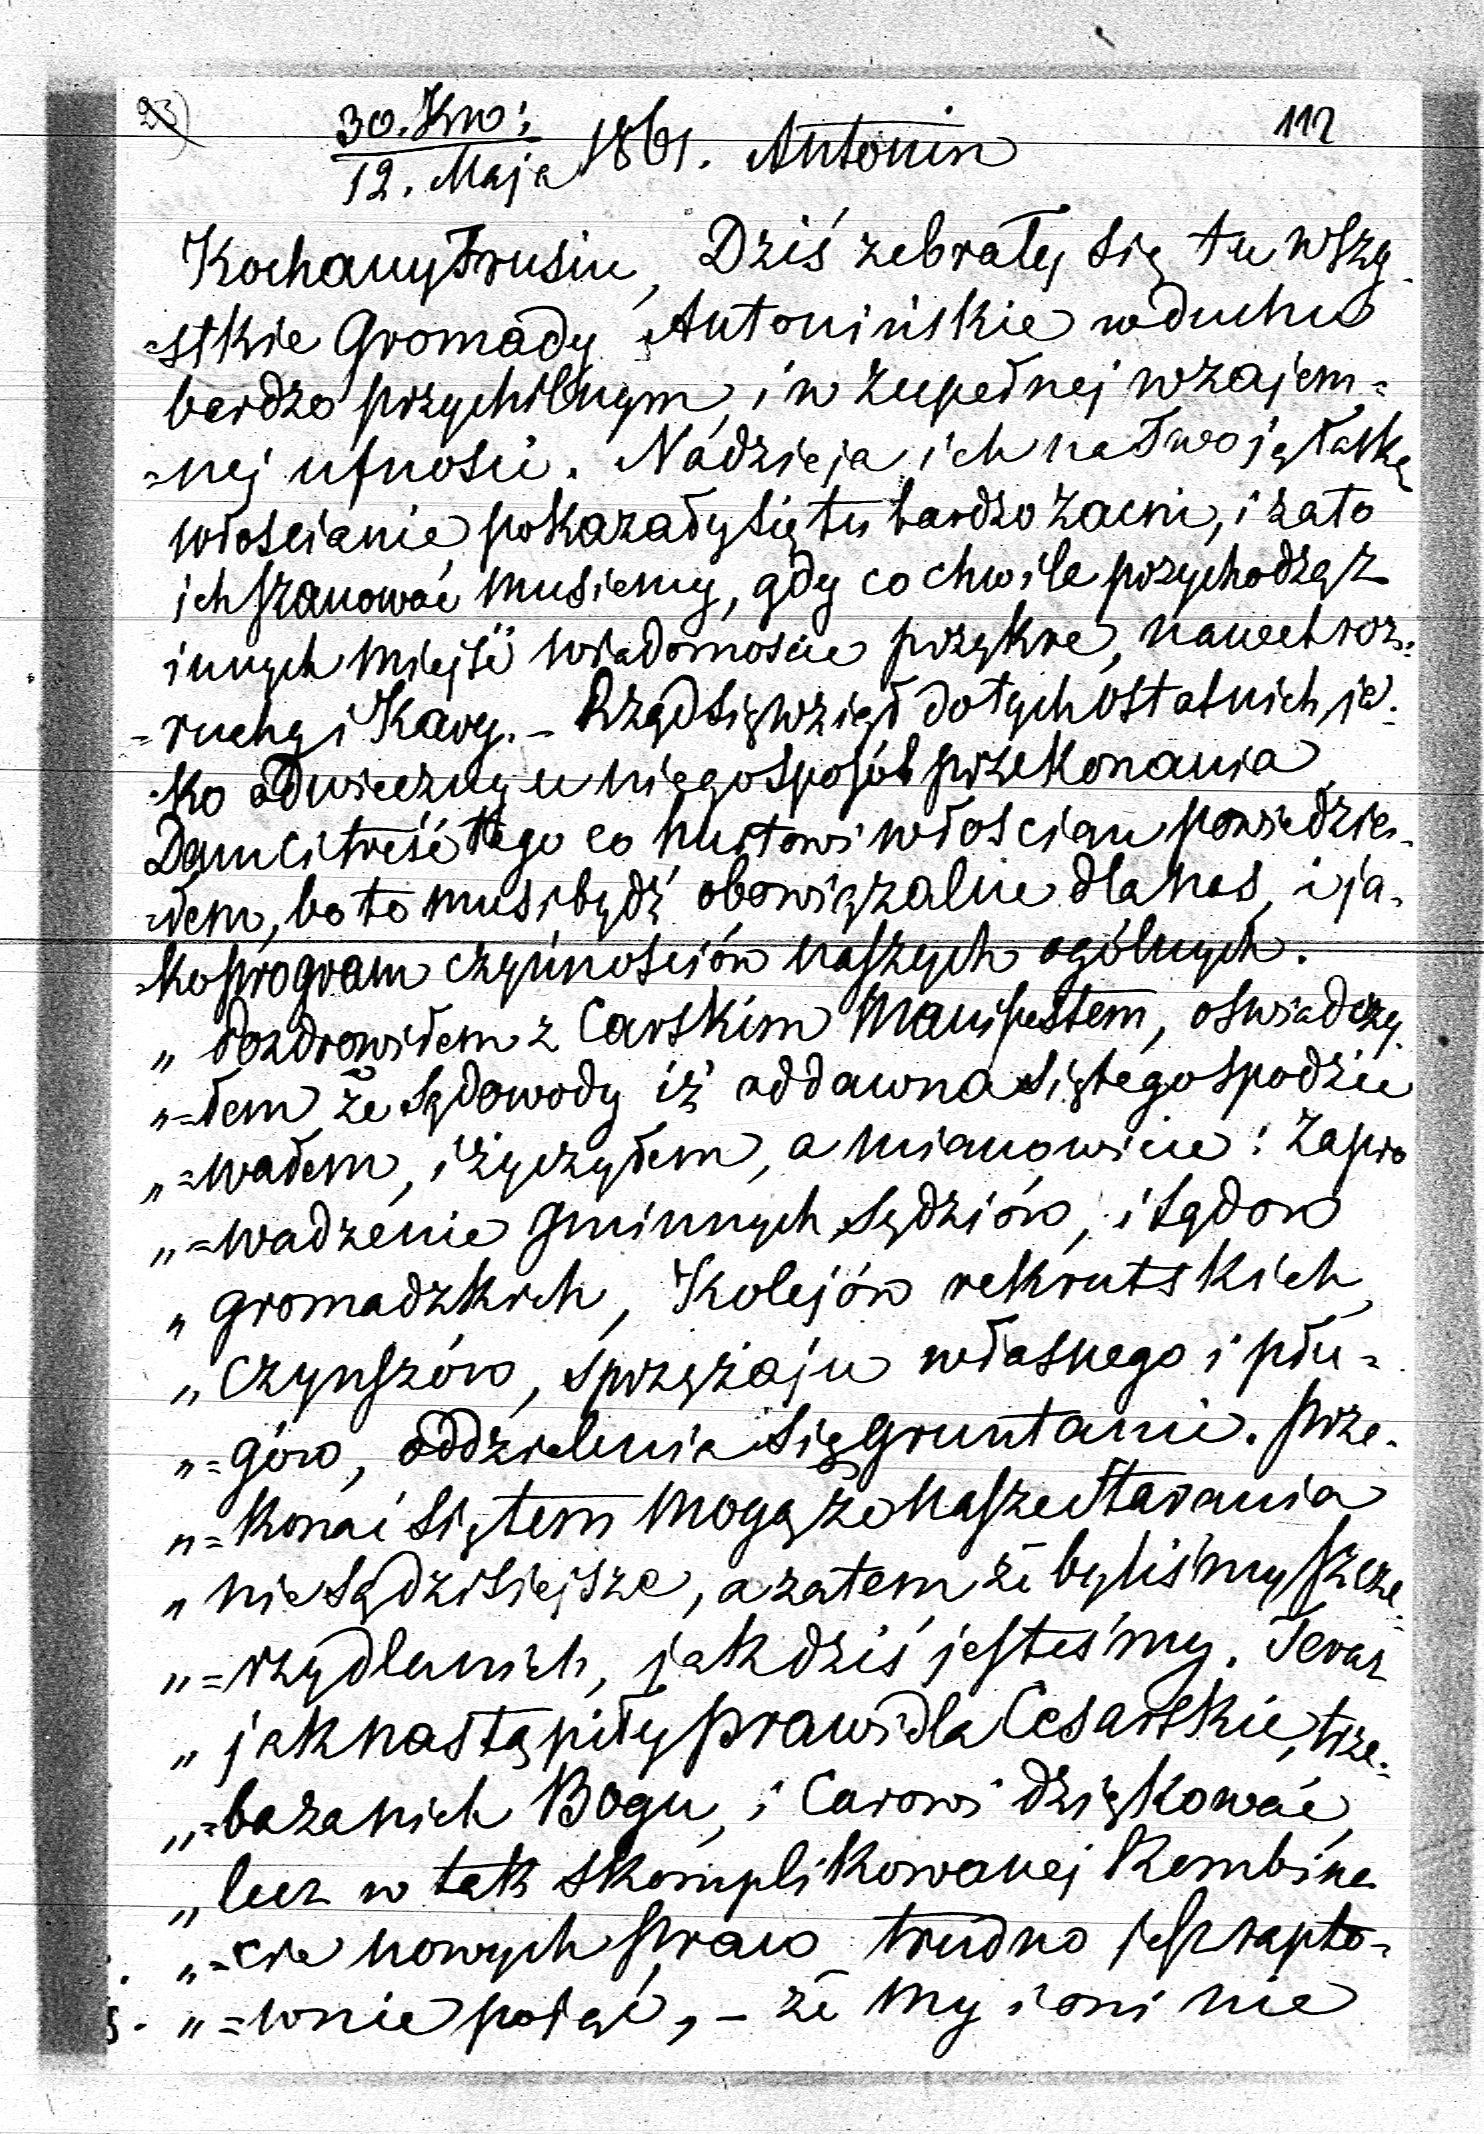 23)
112
30. Kw:
12. Maja 1861. Antonin
Kochany Trusiu, Dziś zebrały się tu wszy-
=stkie Gromady Antonińskie w duchu
bardzo przychilnym, i w zupełnej wzajem=
=nej ufności. Nadzieja ich na Twoją łaskę
włoscianie pokazały się tu bardzo zacni, i za to
ich szanować musiemy, gdy co chwile przychodzą z
innych miejsć wiadomoscie przykre, nawet roz=
=ruchy i Kary. – Rząd się wziął do tych ostatnich, ja-
-ko odwieczny u niego sposób przekonania
Dam ci treść tego co hurtowi włoscian powiedzia-
=łem, bo to musi bydź obowiązalne dla nas, i ja-
=ko program czynnościów naszych ogólnych.
„ Pozdrowiłem z Carskim Manifestem, oswiadczy-
„=łem że są dowody iż oddawna się tego spodzie
„=wałem, i życzyłem, a mianowicie: Zapro
„=wadzenie gminnych Sędziów, i Sądow
„ gromadzkich, Kolejów rekrutskich,
„ Czynszów, sprzężaju własnego i płu=
„=gów, oddzielenia się gruntami. Prze-
„=konać się tem mogą że nasze starania
„ nie są dzisiejsze, a zatem że byliśmy szcze-
„=rzy dla nich, jak dziś jesteśmy. Teraz
„ jak nastąpiły prawidła Cesarskie, trze-
„=ba za nich Bogu, i Carowi dziękować,
„ lecz w tak skomplikowanej Kombina
„=cie nowych praw trudno jest rapto=
„=wnie pojąć, – że my i oni nie